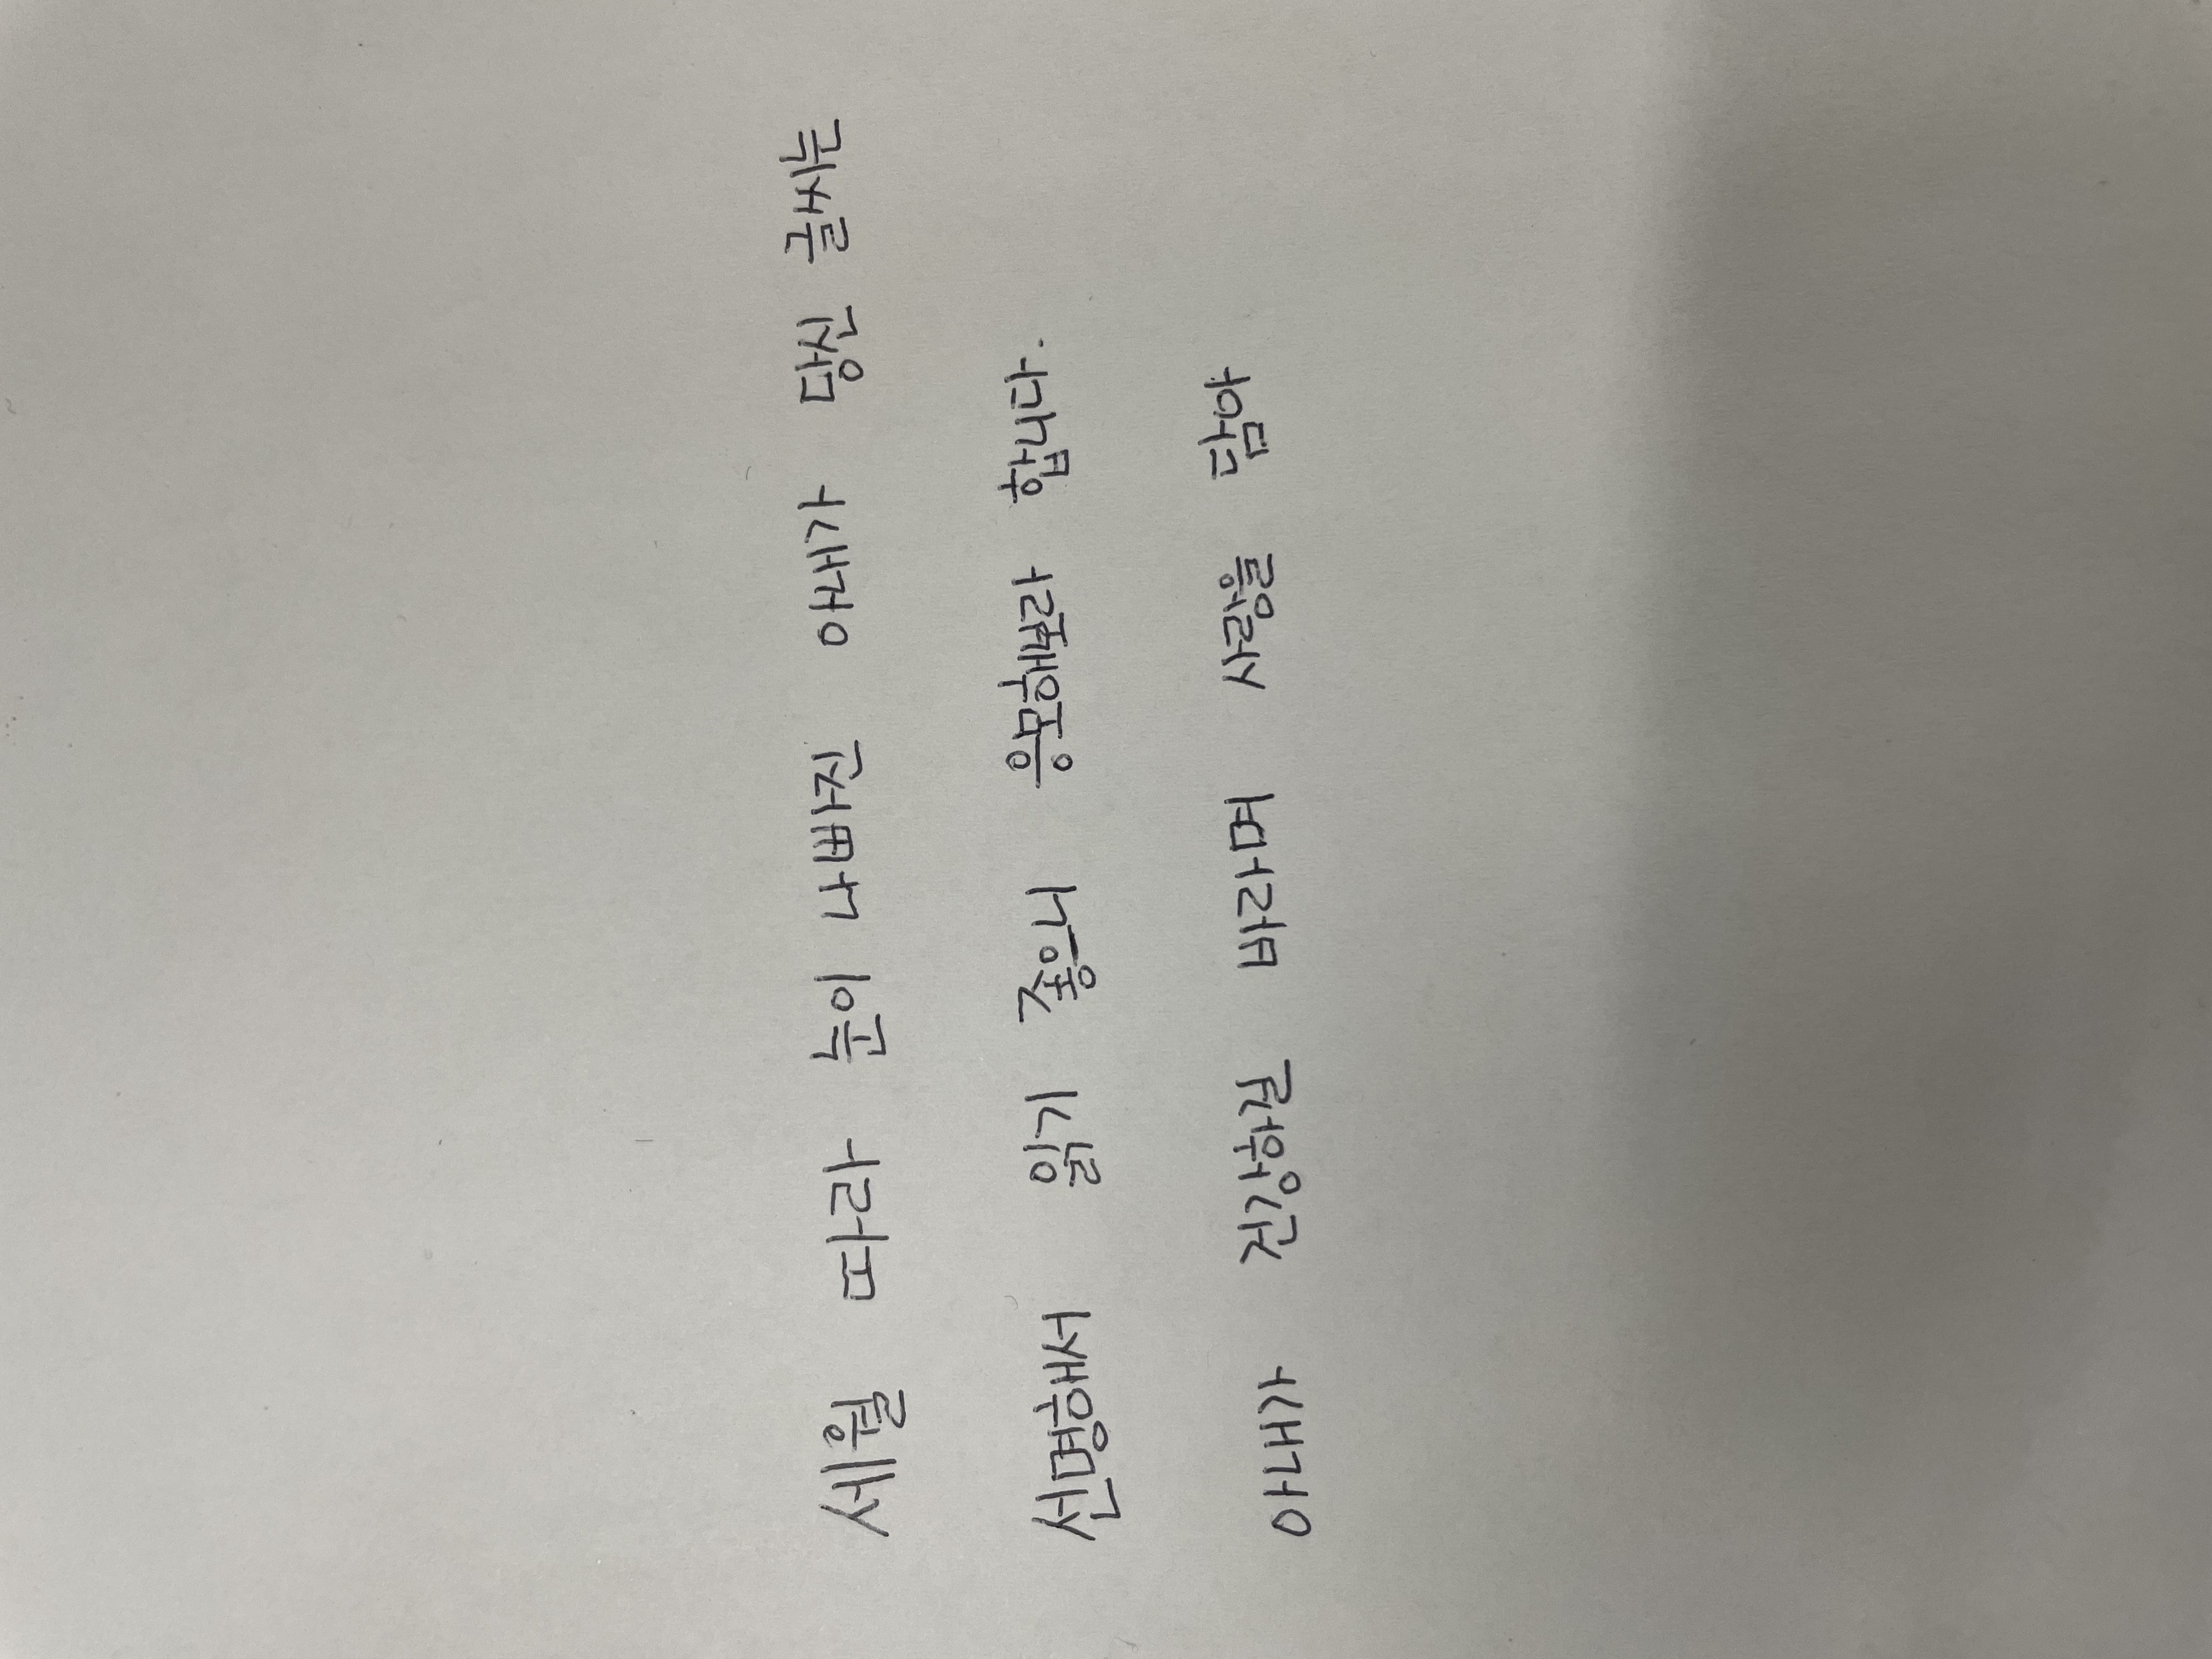 세월 따라 눈이 나빠진 아내가 당신 글씨는
선명해서 읽기 좋으니 응모해보라 합니다.
아내가 건강하길 바라며 사랑을 담아